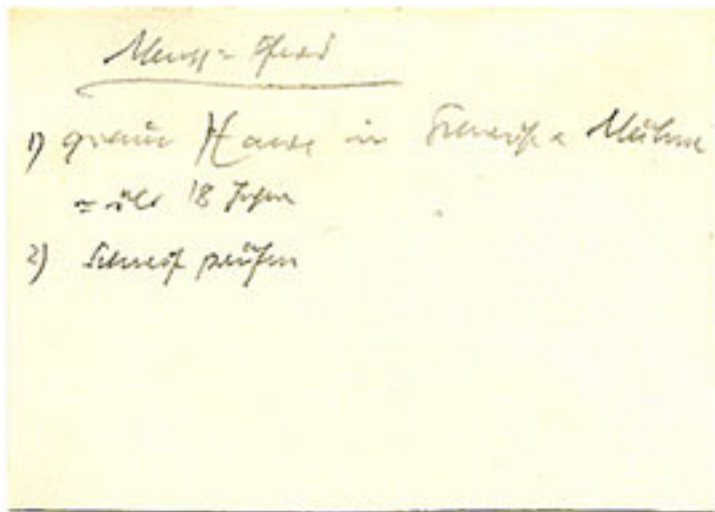 1) graue Haare in Schweif u Mähne
= über 18 Jahre
2) Schweif prüfen